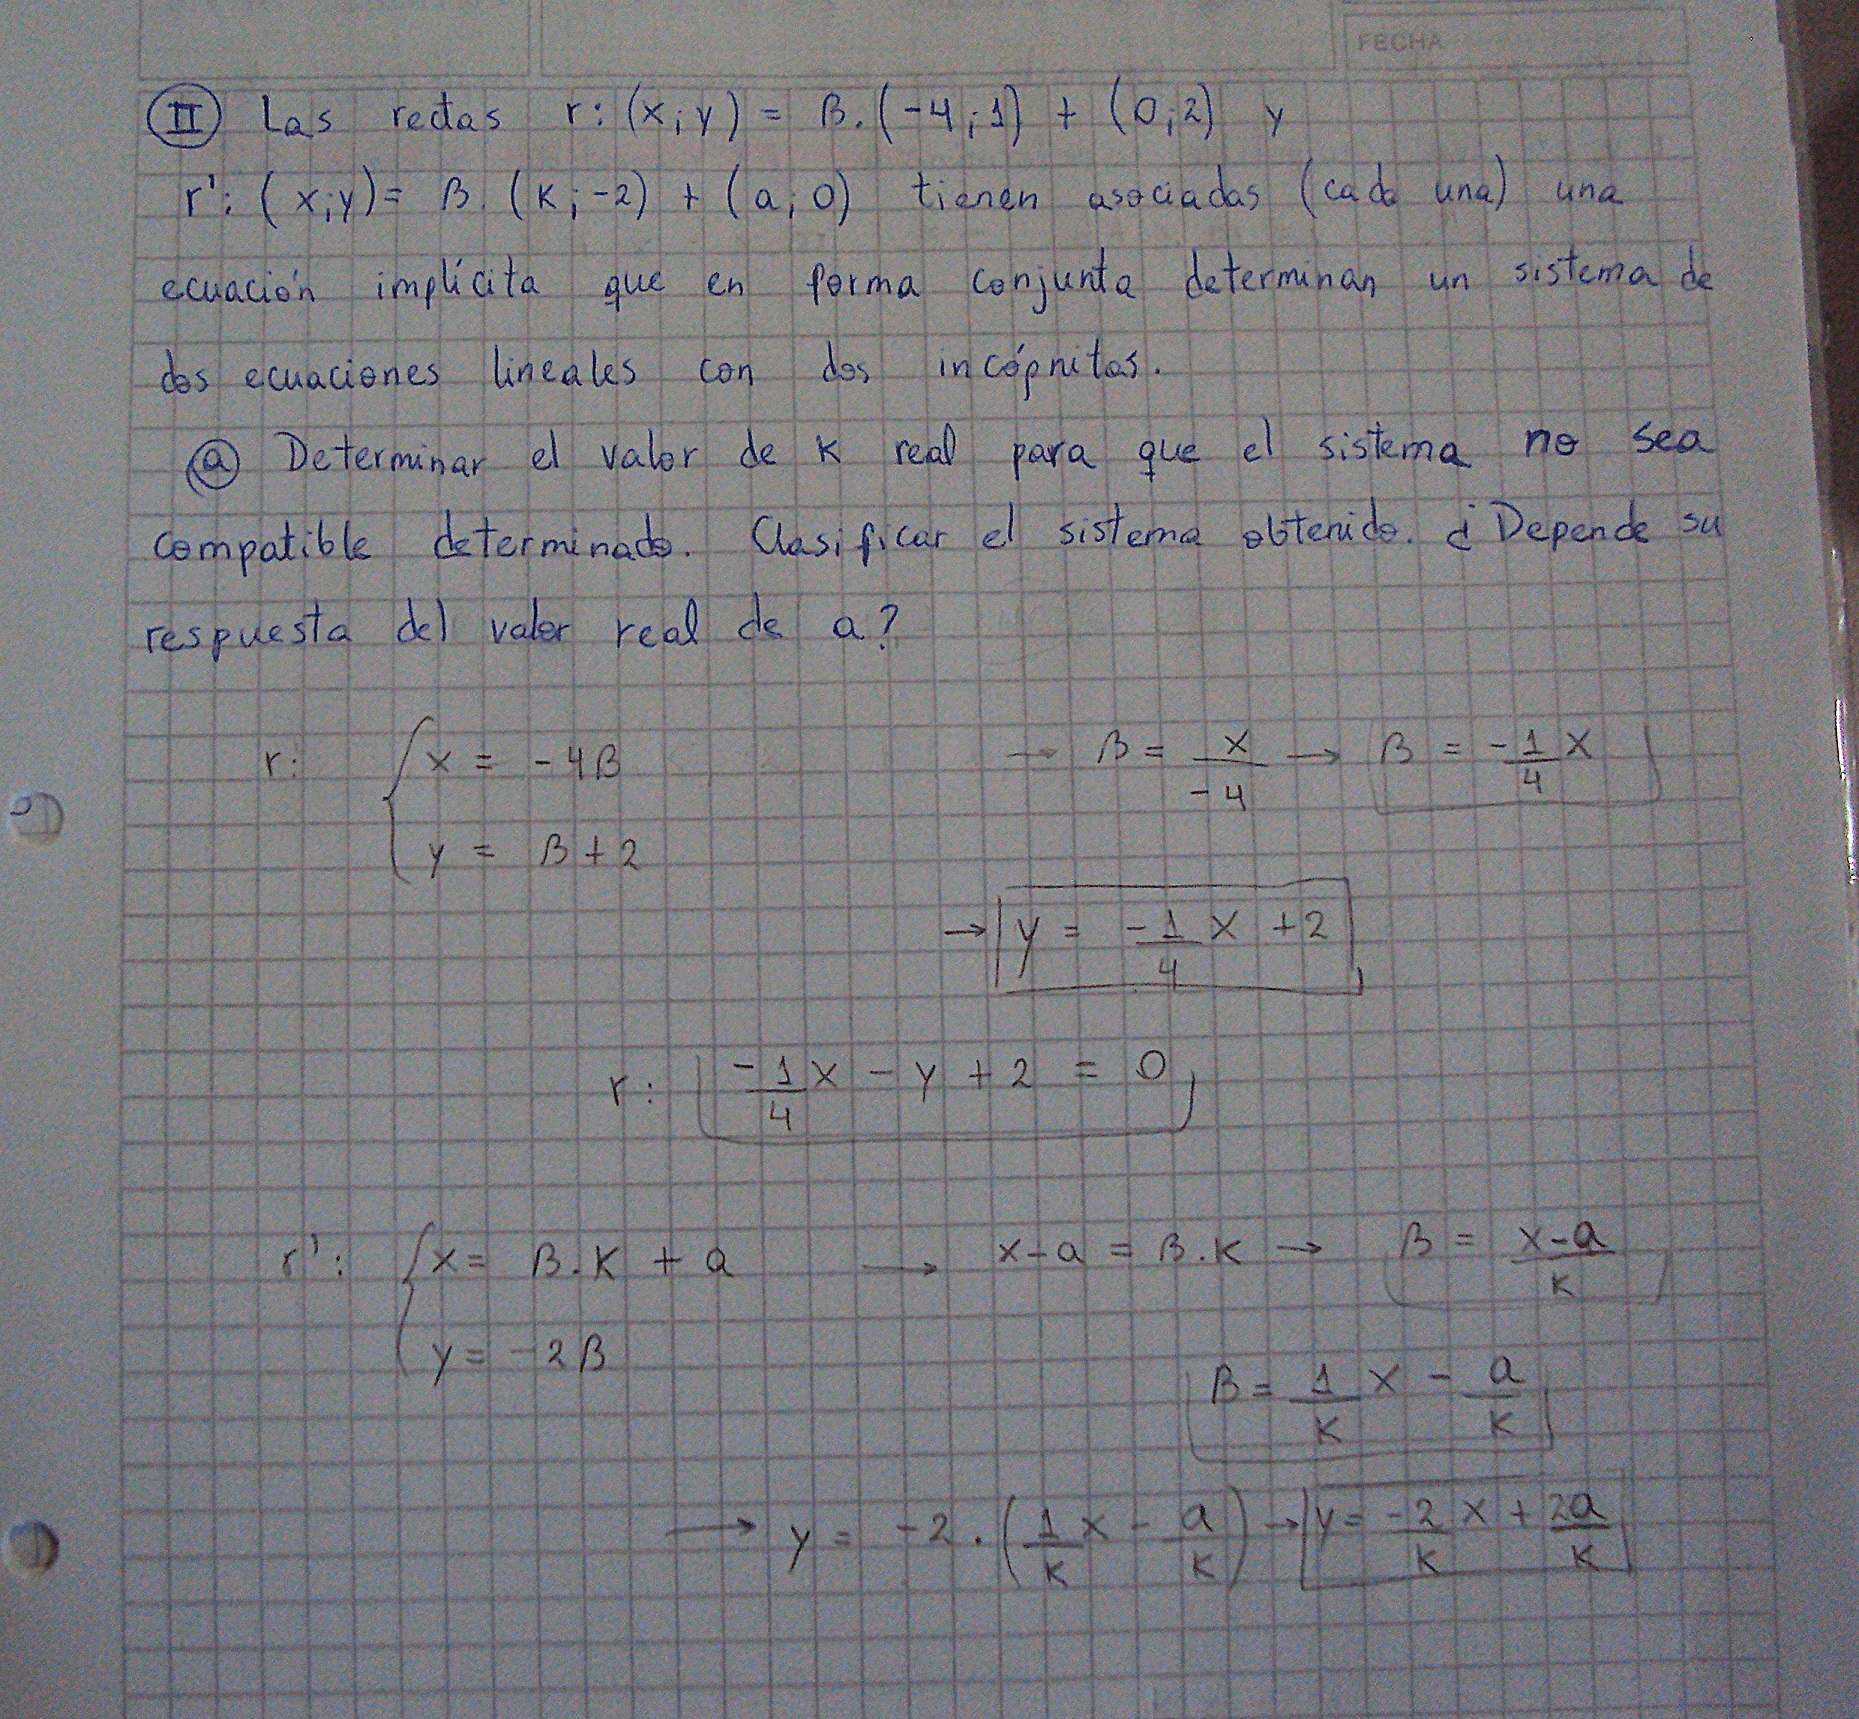 FECHA
II Las rectas r: (x;y) = β.(-4;1) + (0;2) y
r': (x;y)= β.(k;-2) + (a;0) tienen asociadas (cada una) una
ecuación implícita que en forma conjunta determinan un sistema de
dos ecuaciones lineales con dos incógnitas.
a Determinar el valor de k real para que el sistema no sea
compatible determinado. Clasificar el sistema obtenido. ¿Depende su
respuesta del valor real de a?
r: { x = -4β → β = x/-4 → β = -1/4 x
y = β+2
→ y = -1/4 x +2
r: -1/4 x - y + 2 = 0
r': { x = β.k + a → x-a = β.k → β = x-a/k
y = -2β
β = 1/k x - a/k
→ y = -2.(1/k x - a/k) → y = -2/k x + 2a/k